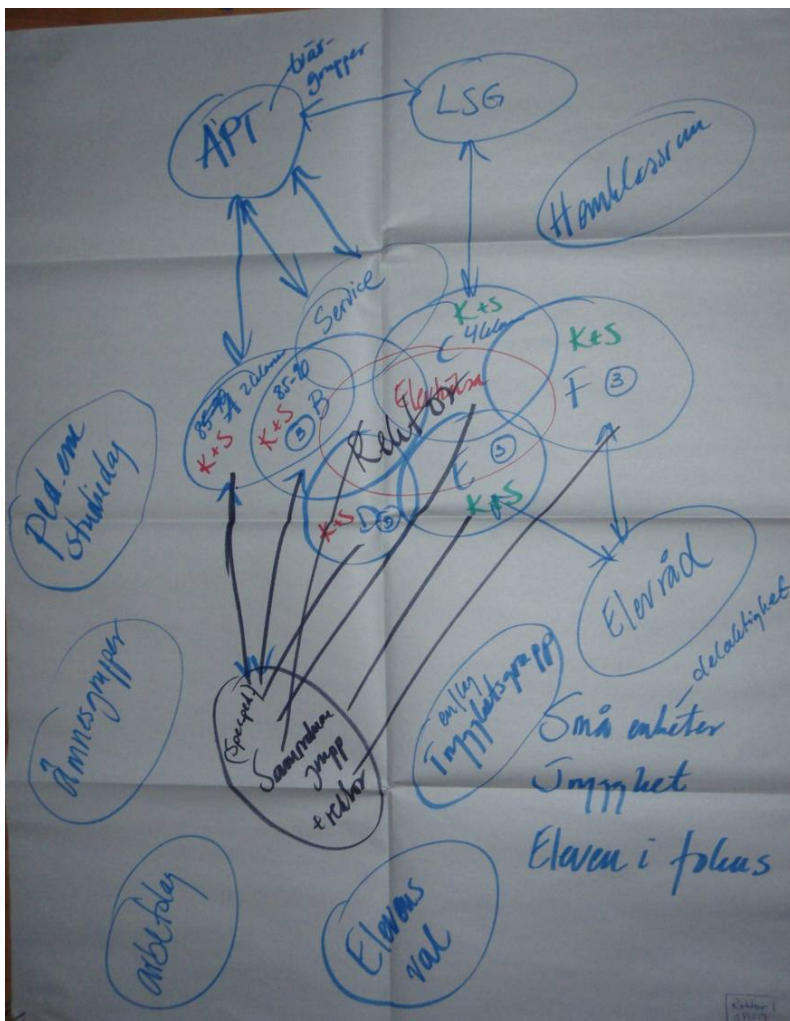 tvär-
grupper
APT
LSG
Hemklassrum
Service
K+S
C 4 klasser
K+S
F 3
85-90
A 2 klasser
K+S
85-90
K+S
3 B
Elevhälsa
Rektor
E 3
K+S
K+S
D 3
Ped. em
studiedag
Elevråd
delaktighet
Ämnesgrupper
(Specped)
Samordnar
grupp
+ rektor
en/lag
Trygghetsgrupp
Små enheter
Trygghet
Eleven i fokus
arbetslag
Elevens
val